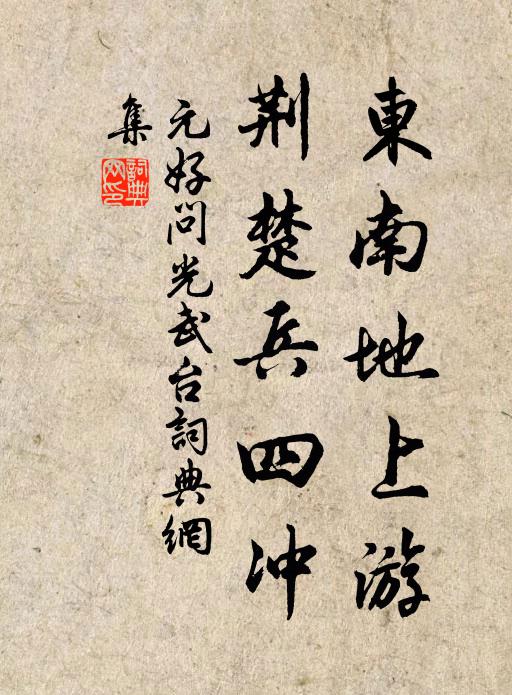 東南地上游
荆楚兵四冲
元好問光武台詞典網
集
詞典
网印